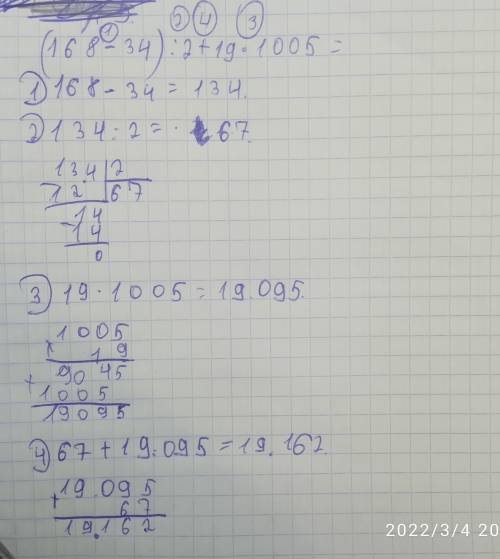 ① ② ④ ③
(168 - 34) : 2 + 19 · 1005 =
1) 168 - 34 = 134.
2) 134 : 2 = 67.
134 | 2
- 12 | 67
- 14
14
0
3) 19 · 1005 = 19.095.
1005
x 19
+ 9045
1005
19095
4) 67 + 19.095 = 19.162.
19.095
+ 67
19.162
2022/3/4 20